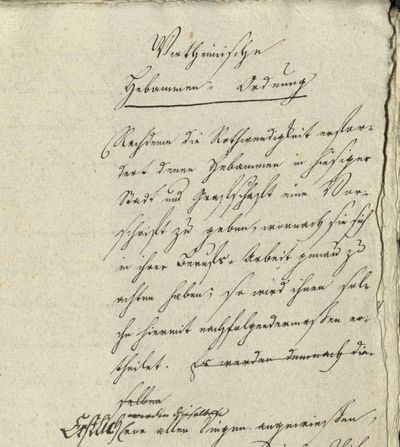 Wertheimische
Hebammen-Ordnung
Nachdeme die Nothwendigkeit erfor-
dert denen Hebammen in hiesiger
Stadt und Grafschafft eine Vor-
schrifft zu geben, wornach sie sich
in ihrer Berufs-Arbeit genau zu
achten haben; so wird ihnen sol-
che hiermit nachfolgendermaßen er-
theilet. Es werden demnach die-
selben
werden dieselbe
Erstlich vor allen Dingen angewiesen,